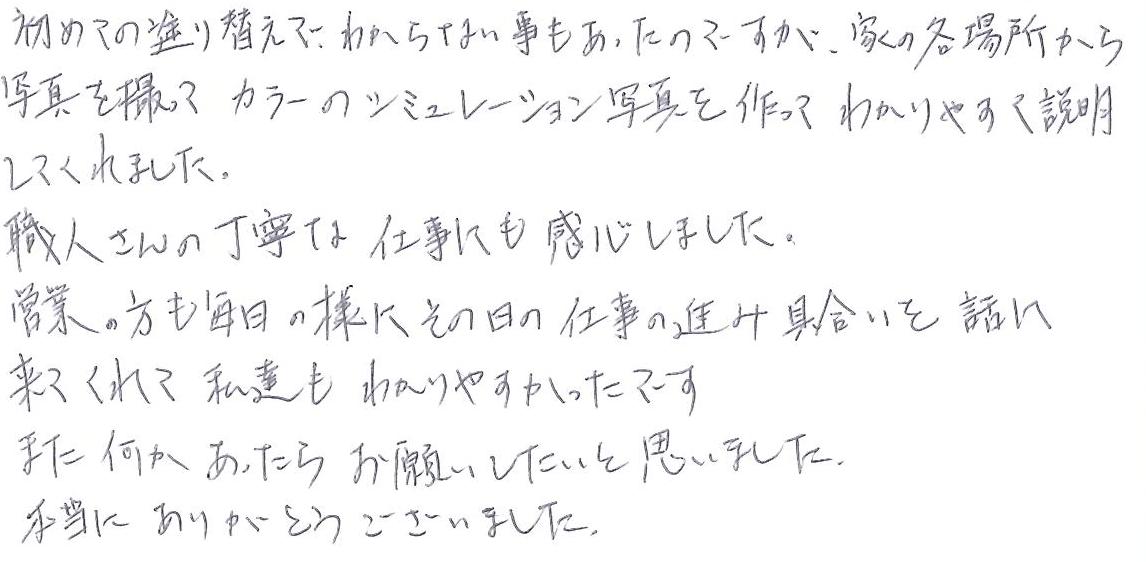 初めての塗り替えで、わからない事もあったのですが、家の各場所から
写真を撮って カラーのシミュレーション写真を作って わかりやすく説明
してくれました。
職人さんの丁寧な 仕事にも 感心しました。
営業の方も毎日の様に その日の 仕事の進み具合いを 話に
来てくれて 私達も わかりやすかったです
また 何か あったら お願いしたいと 思いました。
本当に ありがとうございました。